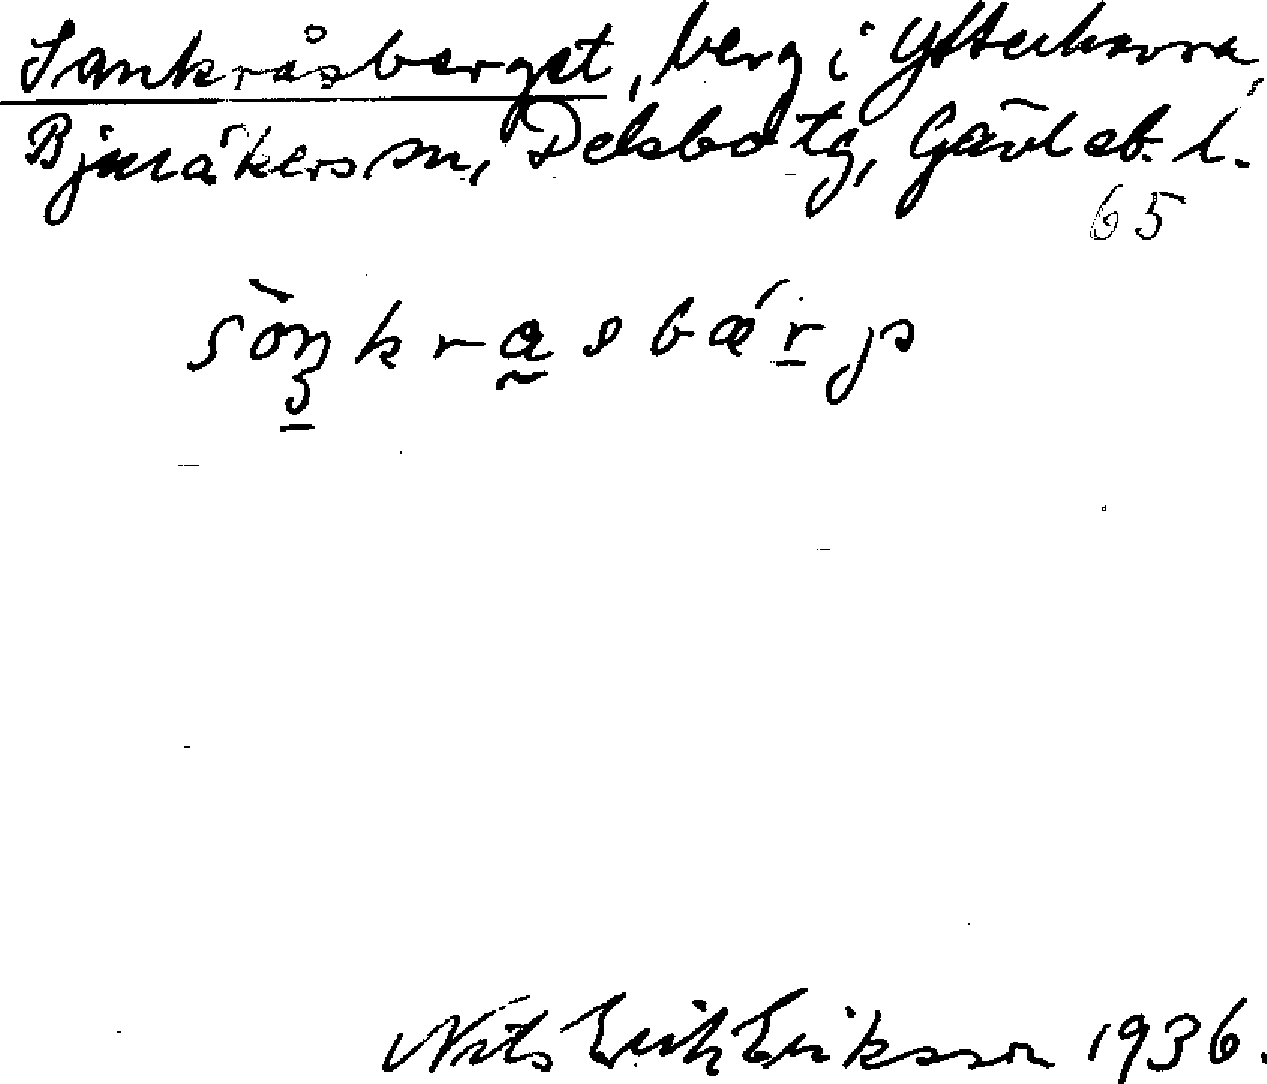 Sankråsberget, berg i Ytterhavra,
Bjuråkers sn, Delsbo tg, Gävleb. l.
65
Nils Erik Eriksson 1936.